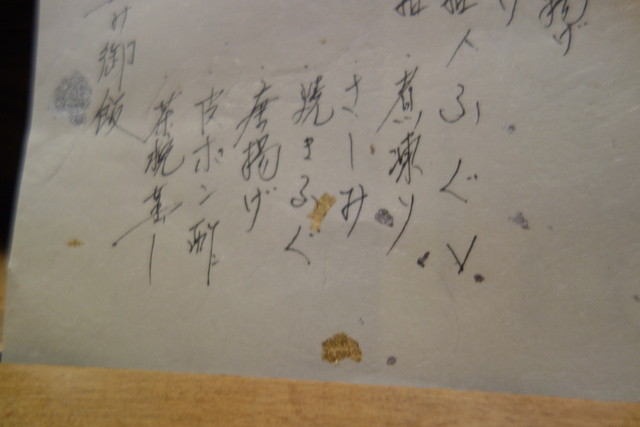 揚げ
り
人ふぐ
煮凍り
さしみ
焼きふぐ
唐揚げ
皮ポン酢
茶碗蒸し
御飯